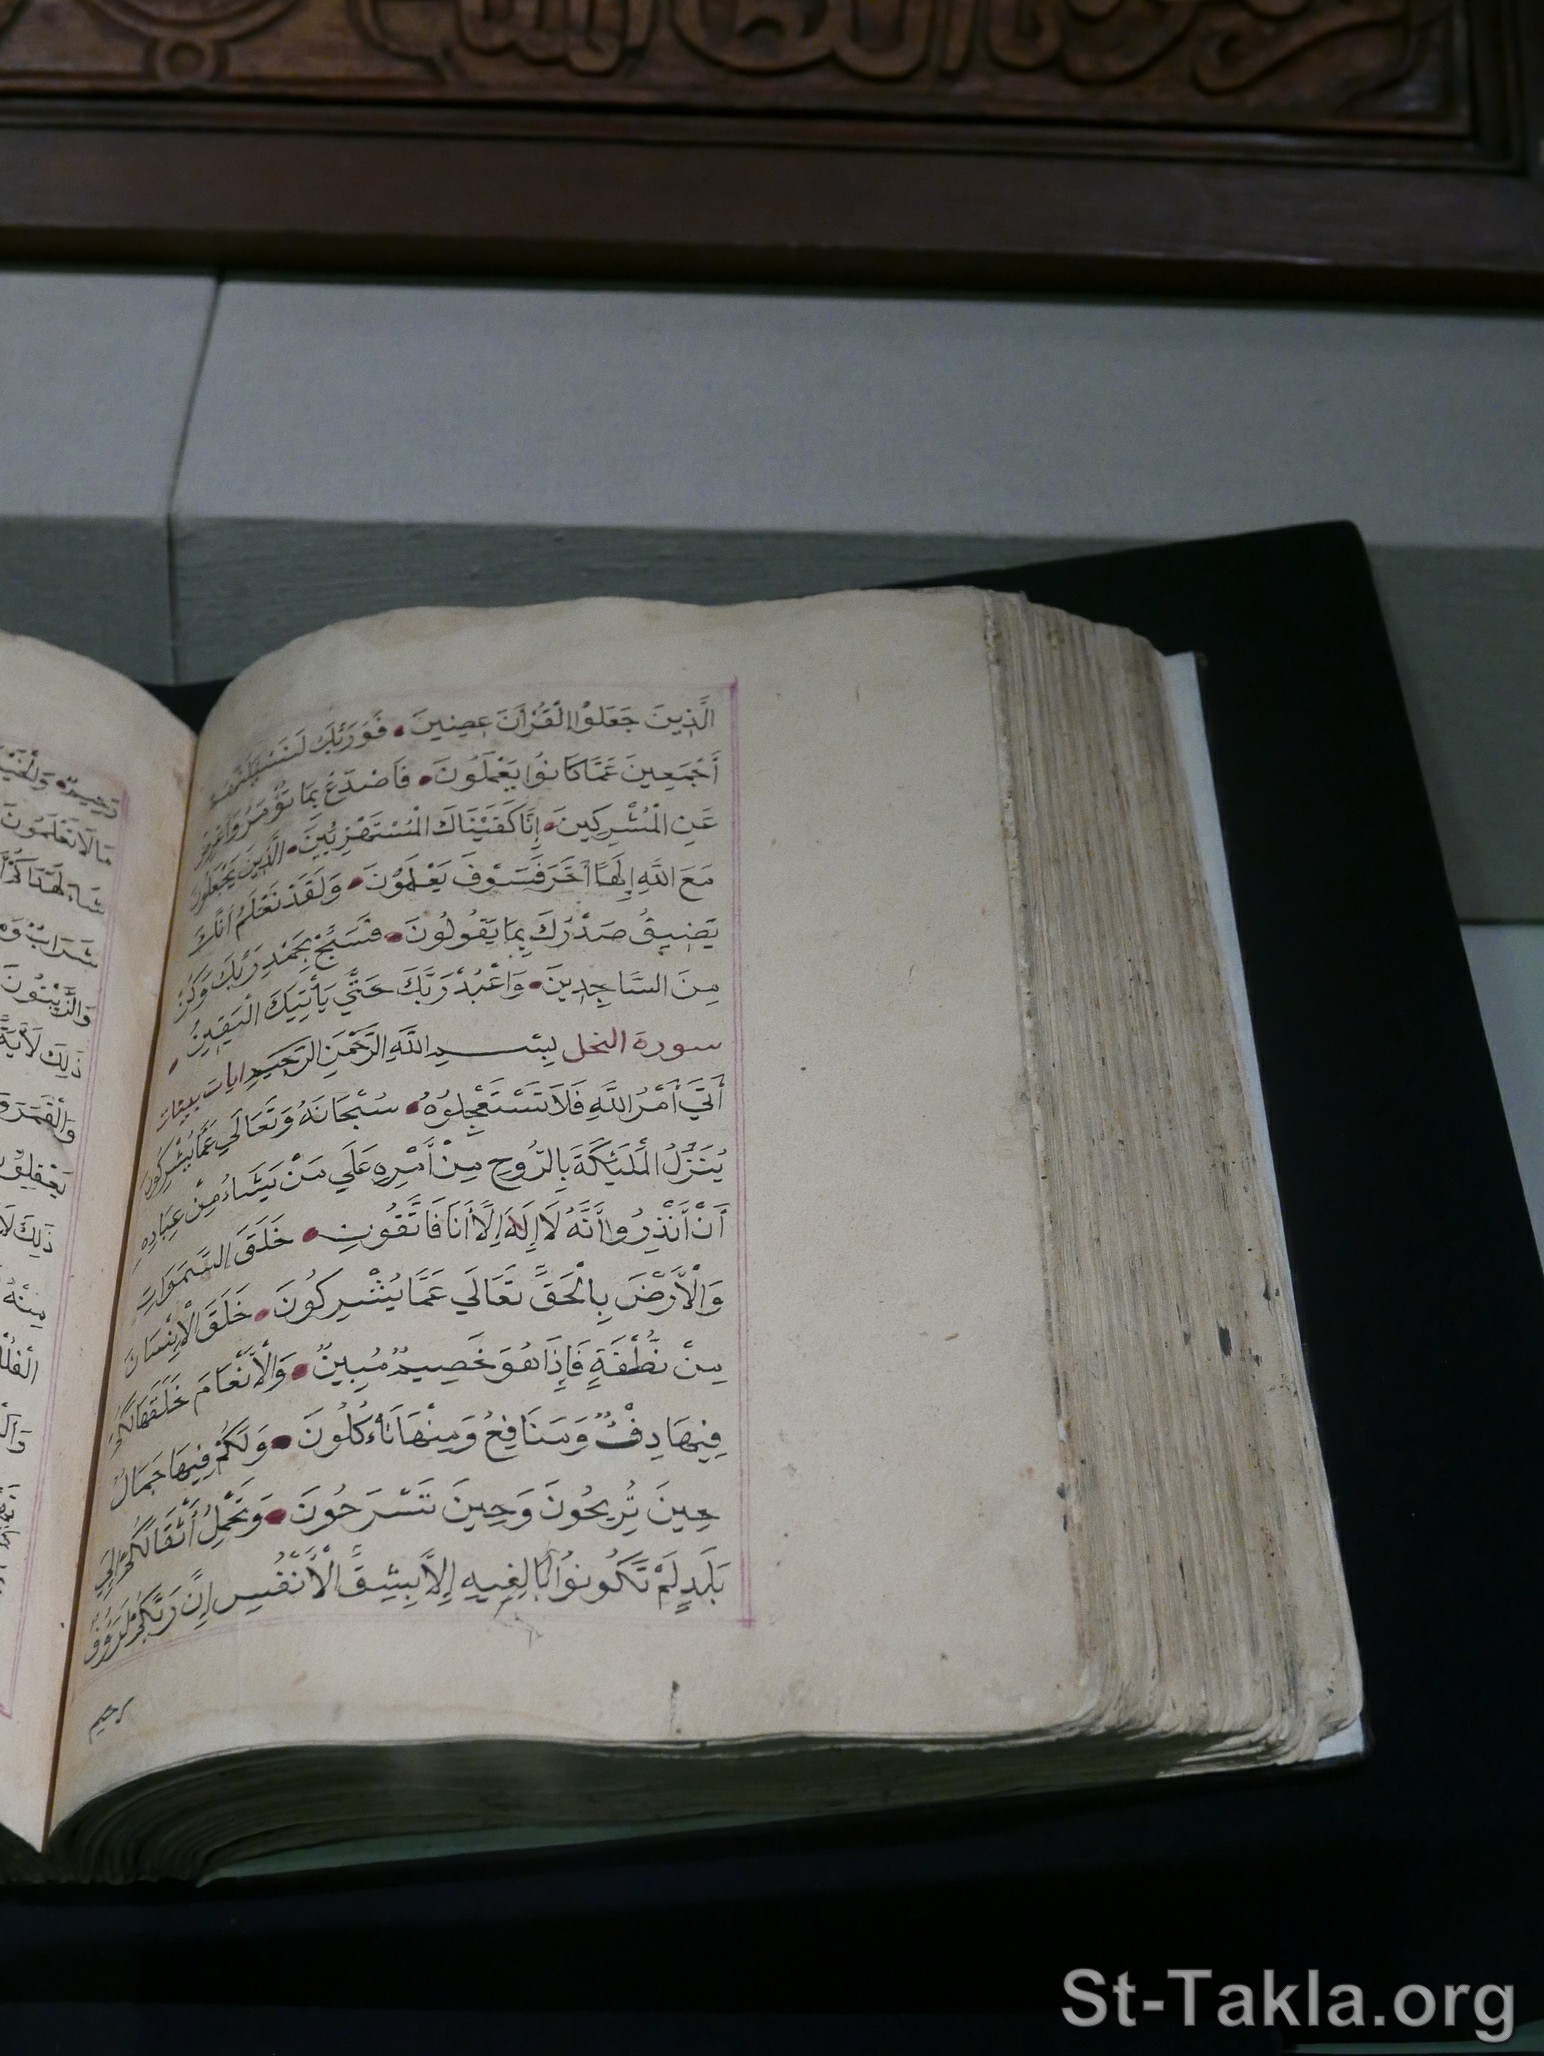 الَّذِينَ جَعَلُوا الْقُرْاَنَ عِضِينَ فَوَرَبِّكَ لَنَسْئَلَنَّهُمْ
أَجْمَعِينَ عَمَّا كَانُوا يَعْمَلُونَ فَاصْدَعْ بِمَا تُؤْمَرُ وَأَعْرِضْ
عَنِ الْمُشْرِكِينَ إِنَّا كَفَيْنَاكَ الْمُسْتَهْزِئِينَ الَّذِينَ يَجْعَلُونَ
مَعَ اللَّهِ إِلَهًا أَخَرَ فَسَوْفَ يَعْلَمُونَ وَلَقَدْ نَعْلَمُ أَنَّكَ
يَضِيقُ صَدْرُكَ بِمَا يَقُولُونَ فَسَبِّحْ بِحَمْدِ رَبِّكَ وَكُنْ
مِنَ السَّاجِدِينَ وَاعْبُدْ رَبَّكَ حَتَّي يَأْتِيَكَ الْيَقِينُ
سورة النحل بِسْمِ اللَّهِ الرَّحْمَنِ الرَّحِيمِ ايات
أَتَي أَمْرُ اللَّهِ فَلَا تَسْتَعْجِلُوهُ سُبْحَانَهُ وَتَعَالَي عَمَّا يُشْرِكُونَ
يُنَزِّلُ الْمَلَئِكَةَ بِالرُّوحِ مِنْ أَمْرِهِ عَلَي مَنْ يَشَاءُ مِنْ عِبَادِهِ
أَنْ أَنْذِرُوا أَنَّهُ لَا إِلَهَ إِلَّا أَنَا فَاتَّقُونِ خَلَقَ السَّمَوَاتِ
وَالْأَرْضَ بِالْحَقِّ تَعَالَي عَمَّا يُشْرِكُونَ خَلَقَ الْإِنْسَانَ
مِنْ نُطْفَةٍ فَإِذَا هُوَ خَصِيمٌ مُبِينٌ وَالْأَنْعَامَ خَلَقَهَا لَكُمْ
فِيهَا دِفْءٌ وَمَنَافِعُ وَمِنْهَا تَأْكُلُونَ وَلَكُمْ فِيهَا جَمَالٌ
حِينَ تُرِيحُونَ وَحِينَ تَسْرَحُونَ وَتَحْمِلُ أَثْقَالَكُمْ إِلَي
بَلَدٍ لَمْ تَكُونُوا بَالِغِيهِ إِلَّا بِشِقِّ الْأَنْفُسِ إِنَّ رَبَّكُمْ لَرَؤُفٌ
رحيم
مَا لَا تَعْلَمُونَ
شَرَابٌ
وَالزَّيْتُونَ
ذَلِكَ لَأَيَةً
وَالْقَمَرَ
ذَلِكَ
مِنْهُ
St-Takla.org